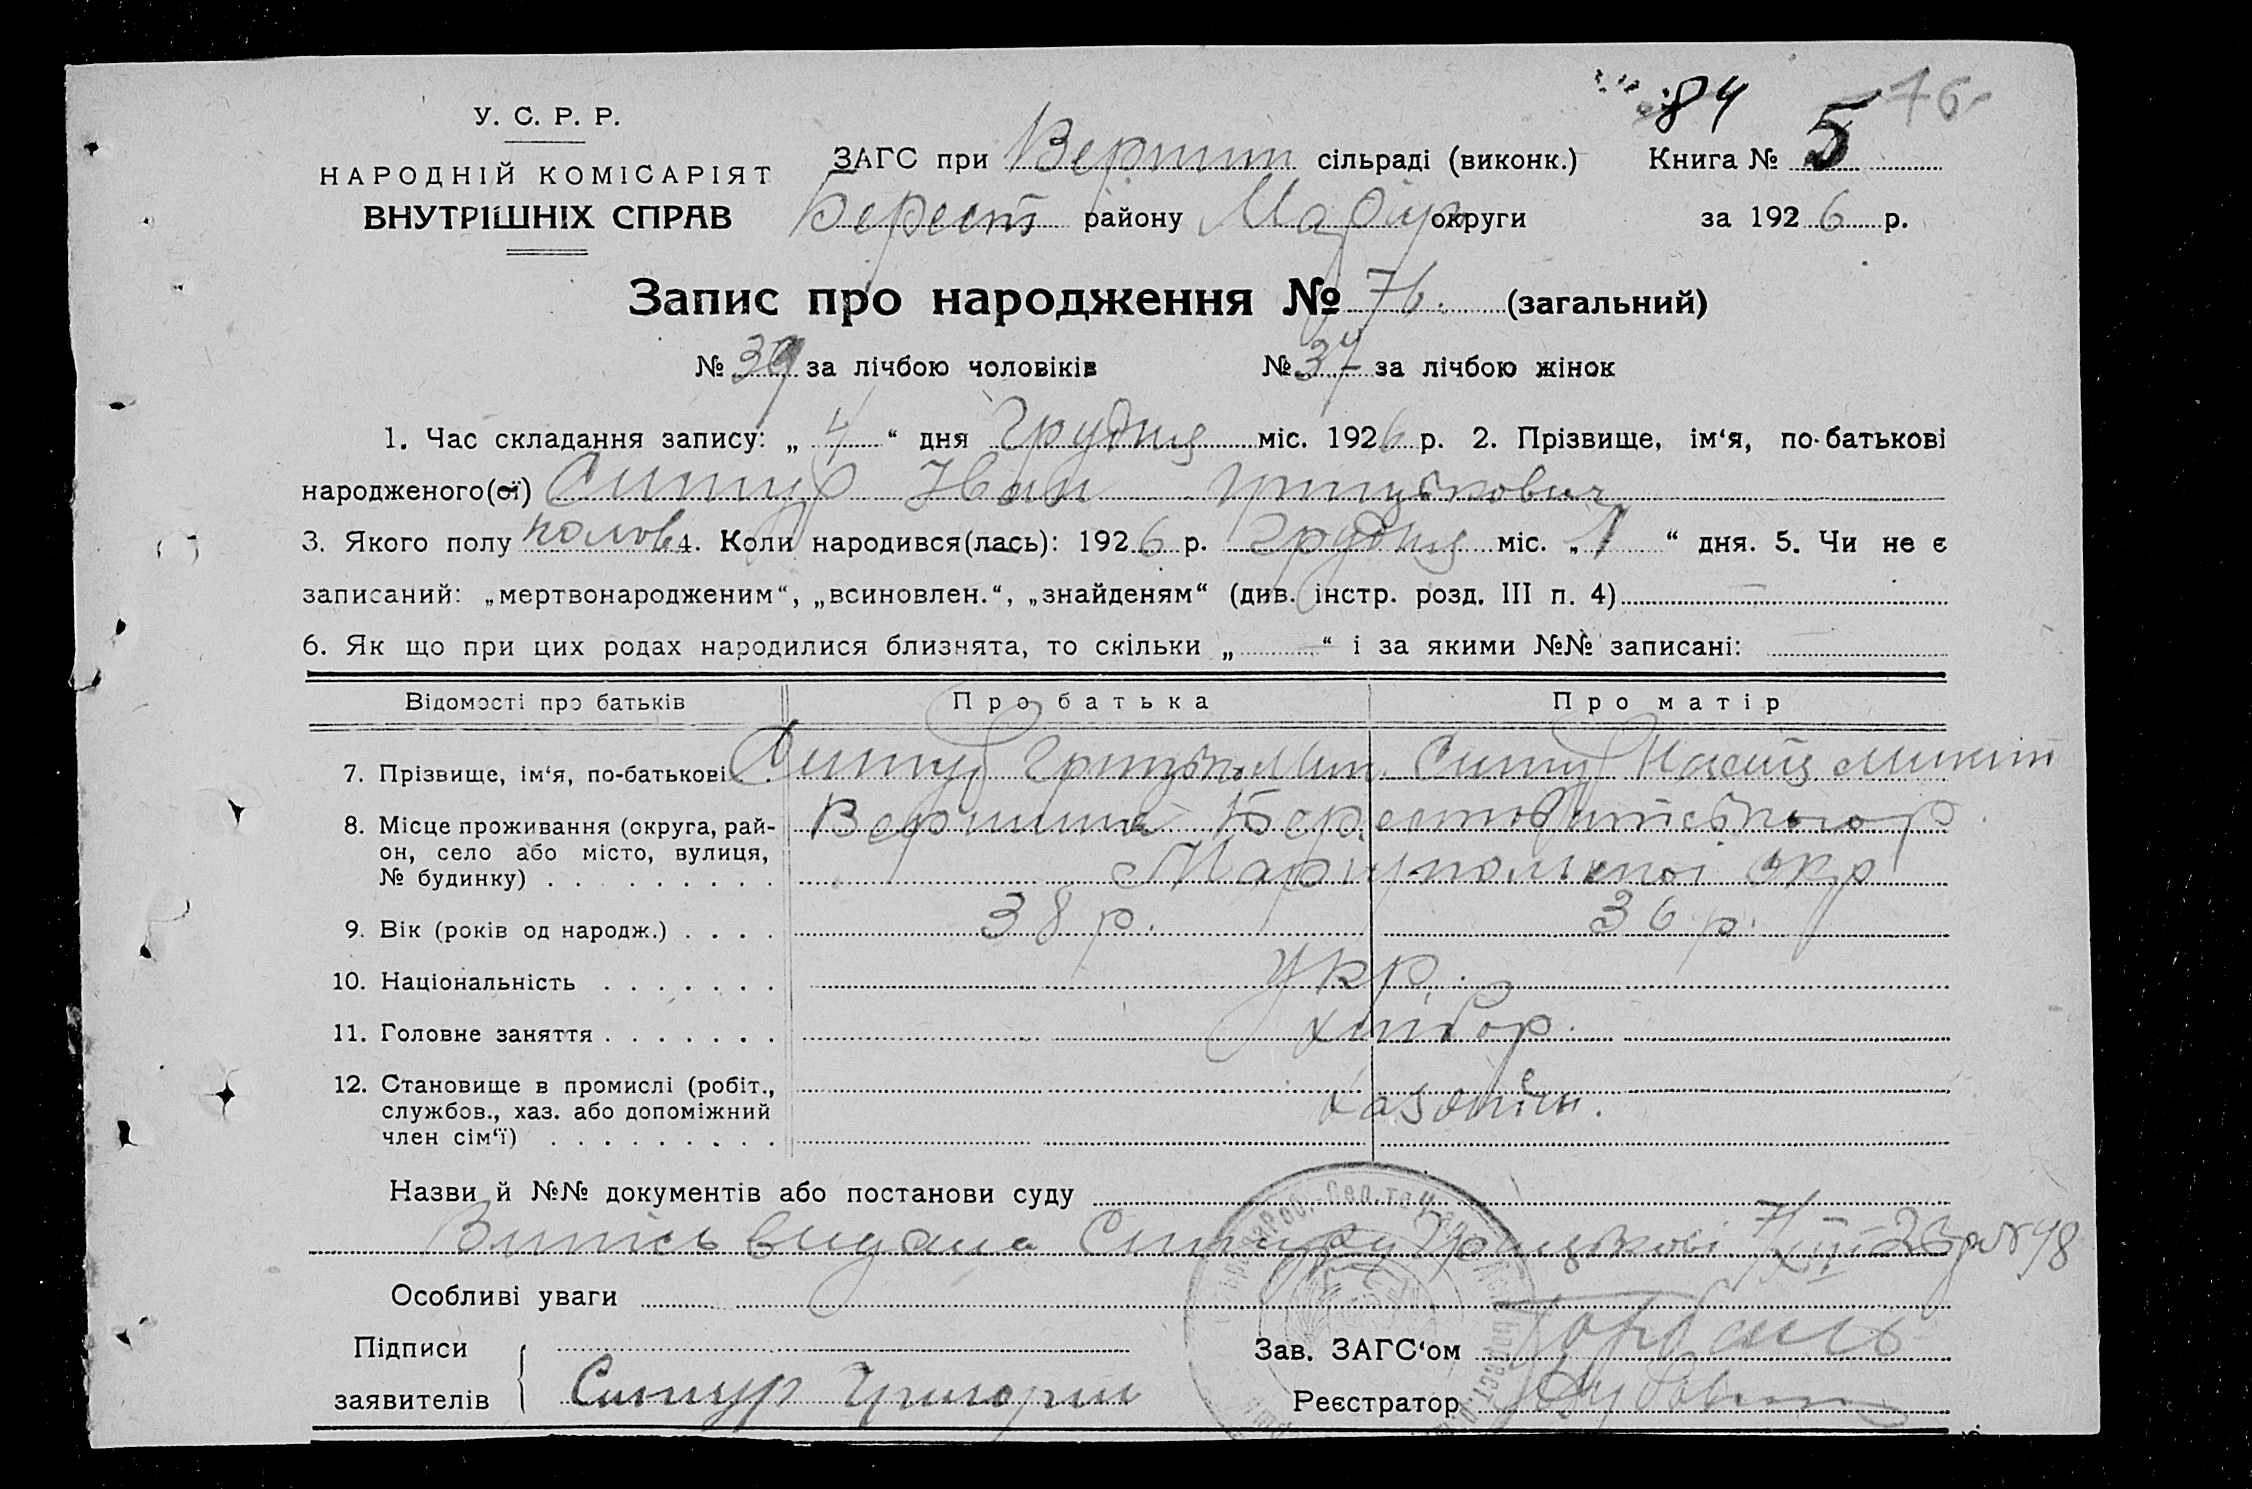 84 5 76
У. С. Р. Р.
НАРОДНІЙ КОМІСАРІЯТ
ВНУТРІШНІХ СПРАВ
ЗАГС при Вершин сільраді (виконк.) Книга № 5
Берест району Маріуп округи за 1926 р.
Запис про народження № 76. (загальний)
№ 39 за лічбою чоловіків № 37 за лічбою жінок
1. Час складання запису: „ 4 “ дня Грудня міс. 1926 р. 2. Прізвище, ім‘я, по-батькові
народженого(ої) Ситур Іван Грицькович
3. Якого полу чолов 4. Коли народився(лась): 1926 р. Грудня міс. „ 1 “ дня. 5. Чи не є
записаний: „мертвонародженим“, „всиновлен.“, „знайденям“ (див. інстр. розд. III п. 4)
6. Як що при цих родах народилися близнята, то скільки „ “ і за якими №№ записані:
Відомості про батьків Про батька Про матір
7. Прізвище, ім‘я, по-батькові Ситур Грицько Мит. Ситур Настя Микит
8. Місце проживання (округа, рай-
он, село або місто, вулиця,
№ будинку)
Вершина Берестовитського р.
Маріупольської окр
9. Вік (років од народж.) 38 р. 36 р.
10. Національність укр.
11. Головне заняття хлібор.
12. Становище в промислі (робіт.,
службов., хаз. або допоміжний
член сім‘ї)
хазяїн.
Назви й №№ документів або постанови суду
Витісь видана Ситуру Грицькові 7/XII-26р №98
Особливі уваги
Підписи
заявителів Ситур Григорій
Зав. ЗАГС‘ом Горбань
Реєстратор